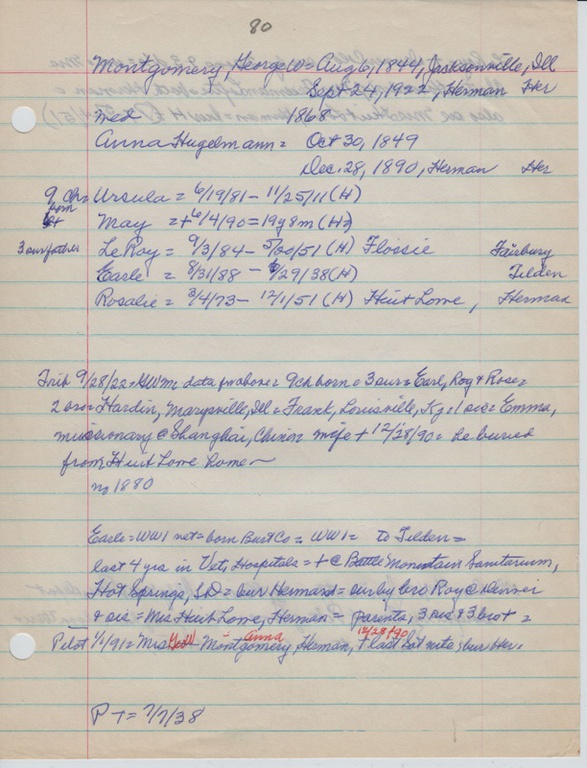 80
Montgomery, George W = Aug 6, 1844, Jacksonville, Ill
Sept 24, 1922, Herman Her
med 1868
Anna Hugelmann = Oct 30, 1849
Dec. 28, 1890, Herman Her
9 ch = Ursula = 6/19/81 - 11/25/11 (H)
born
May = + 6/4/90 = 19y8m (H)
3 sur father LeRoy = 9/3/84 - 5/30/51 (H) Flossie Fairbury
Earle = 8/31/88 - 6/29/38 (H) Tilden
Rosalie = 3/4/73 - 12/1/51 (H) Hiut Lowe, Herman
Trib 9/28/22 = GWM data for above = 9 ch born = 3 sur = Earl, Roy & Rose =
2 bro = Hardin, Marysville, Ill = Frank, Louisville, Ky = 1 sis = Emma,
missionary @ Shanghai, China = wife + 12/28/90 = be buried
from Hiut Lowe home ~
1880
Earle = WW1 vet = born Burt Co = WW1 = to Tilden =
last 4 yrs in Vets Hospitals = + @ Battle Mountain Sanitarium,
Hot Springs, SD = bur Herman = sur by bro Roy @ Denver
& sis = Mrs Hiut Lowe, Herman = parents, 3 sis & 3 brot =
Pilot 1/1/91 = Mrs GeoW - Montgomery, Herman, + last Sat nite; bur Her.
Anna 12/28+90
P + = 7/7/38